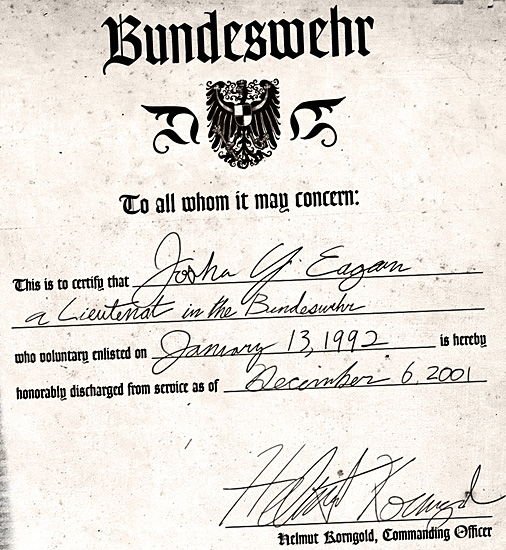 Bundeswehr
To all whom it may concern:
This is to certify that Josha Y. Eagan
a Lieutenat in the Bundeswehr
who voluntary enlisted on January 13, 1992 is hereby
honorably discharged from service as of December 6, 2001
Helmut Korngold
Helmut Korngold, Commanding Officer